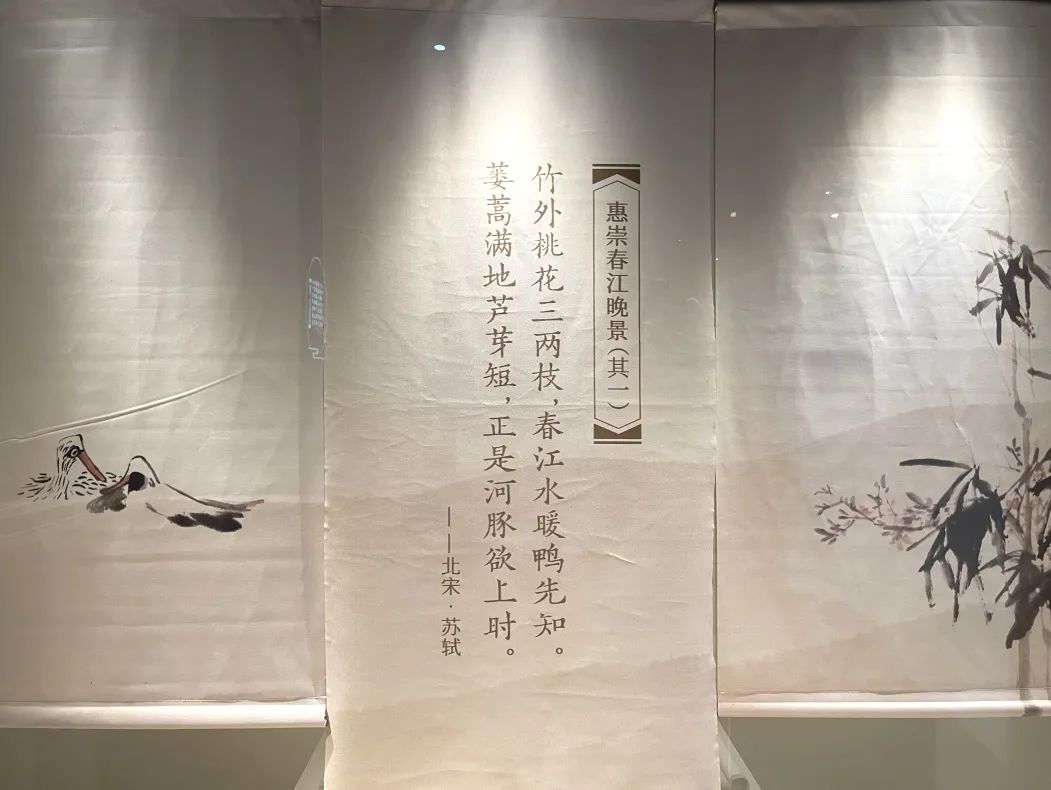 惠崇春江晚景(其一)
竹外桃花三两枝,春江水暖鸭先知。
蒌蒿满地芦芽短,正是河豚欲上时。
——北宋·苏轼